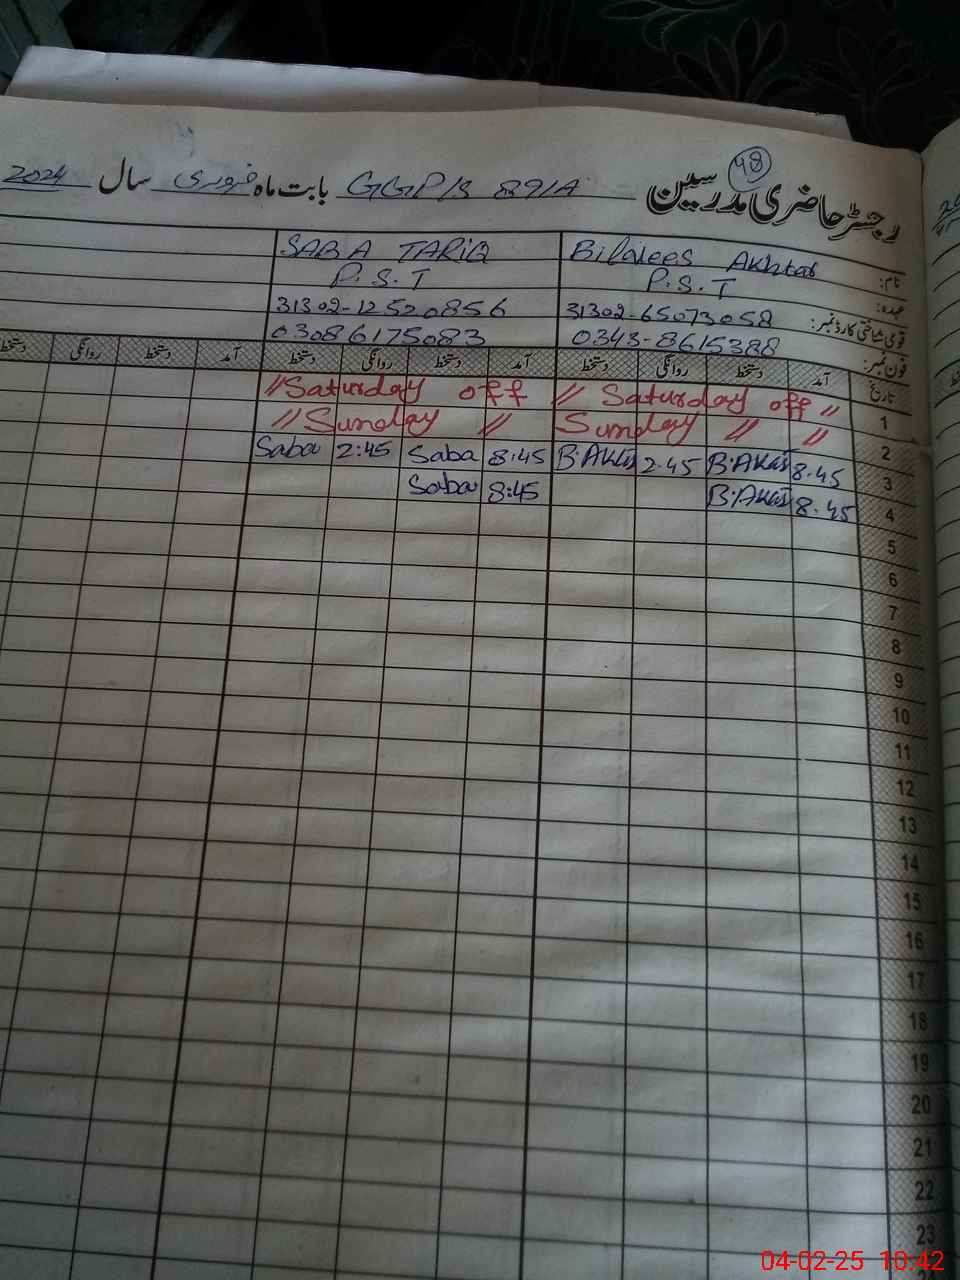 48
رجسٹر حاضری مدرسین GGP/S 89/A بابت ماہ فروری سال 2024
نام: Bilqees Akhtar SABA TARIQ
عہدہ: P.S.T P.S.T
قومی شناختی کارڈ نمبر: 31302-65073058 31302-12520856
فون نمبر: 0343-8615388 03086175083
تاریخ آمد دستخط روانگی دستخط آمد دستخط روانگی دستخط آمد دستخط روانگی دستخط
1 // Saturday off // // Saturday off
2 Sunday // // // Sunday //
3 8.45 B.Akhtar 2.45 B.Akhtar 8:45 Saba 2:45 Saba
4 8.45 B.Akhtar 8:45 Saba
5
6
7
8
9
10
11
12
13
14
15
16
17
18
19
20
21
22
23
04-02-25 10:42